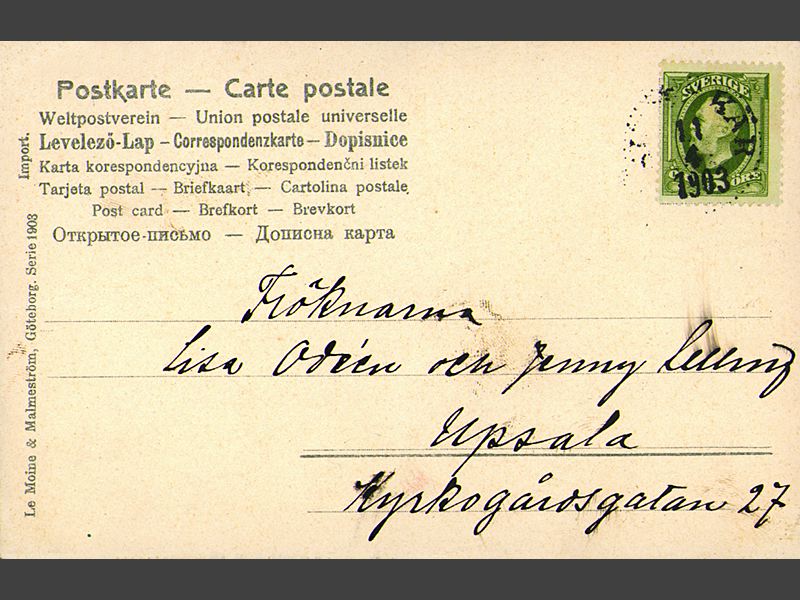 Postkarte — Carte postale
Weltpostverein — Union postale universelle
Levelező-Lap – Correspondenzkarte – Dopisnice
Karta korespondencyjna — Korespondenčni listek
Tarjeta postal — Briefkaart — Cartolina postale
Post card — Brefkort — Brevkort
Открытое-письмо — Дописна карта
Le Moine & Malmeström, Göteborg. Serie 1903 Import.
SVERIGE
ÖRE
KAR
11
1903
Fröknarna
Lisa Odéen och Jenny
Upsala
Kyrkogårdsgatan 27